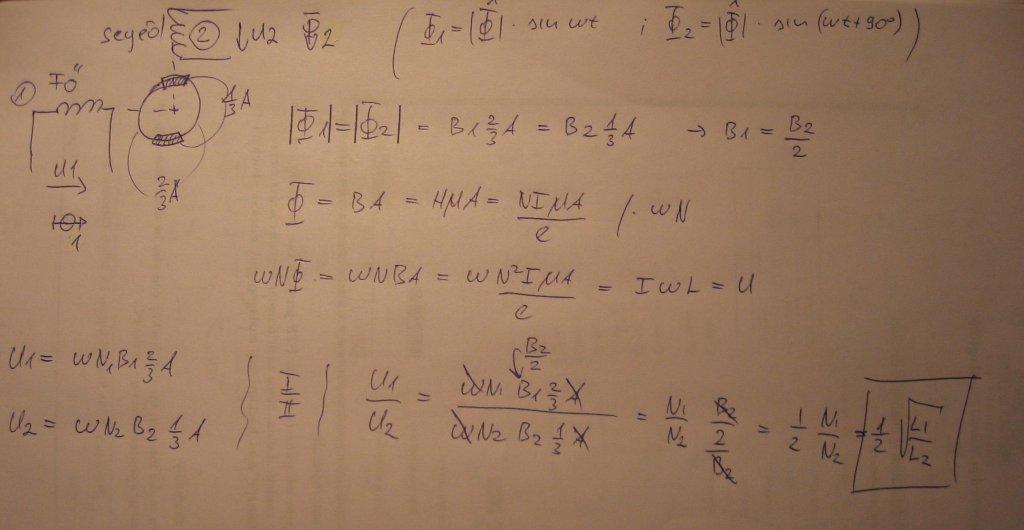 segéd ② ↓U2 Φ̄2 ( Φ̄1 = |Φ̂| · sin ωt ; Φ̄2 = |Φ̂| · sin (ωt+90°) )
① Fő
1/3 A
|Φ̄1| = |Φ̄2| = B1 2/3 A = B2 1/3 A → B1 = B2/2
U1
2/3 A
Φ 1
Φ̄ = BA = HμA = NIμA/l /· ωN
ωNΦ̄ = ωNBA = ωN²IμA/l = IωL = U
U1 = ωN1B1 2/3 A
U2 = ωN2 B2 1/3 A
I/II
B2/2
U1/U2 = ωN1 B1 2/3 A / ωN2 B2 1/3 A = N1/N2 B2/2/B2 = 1/2 N1/N2 = 1/2 √L1/L2